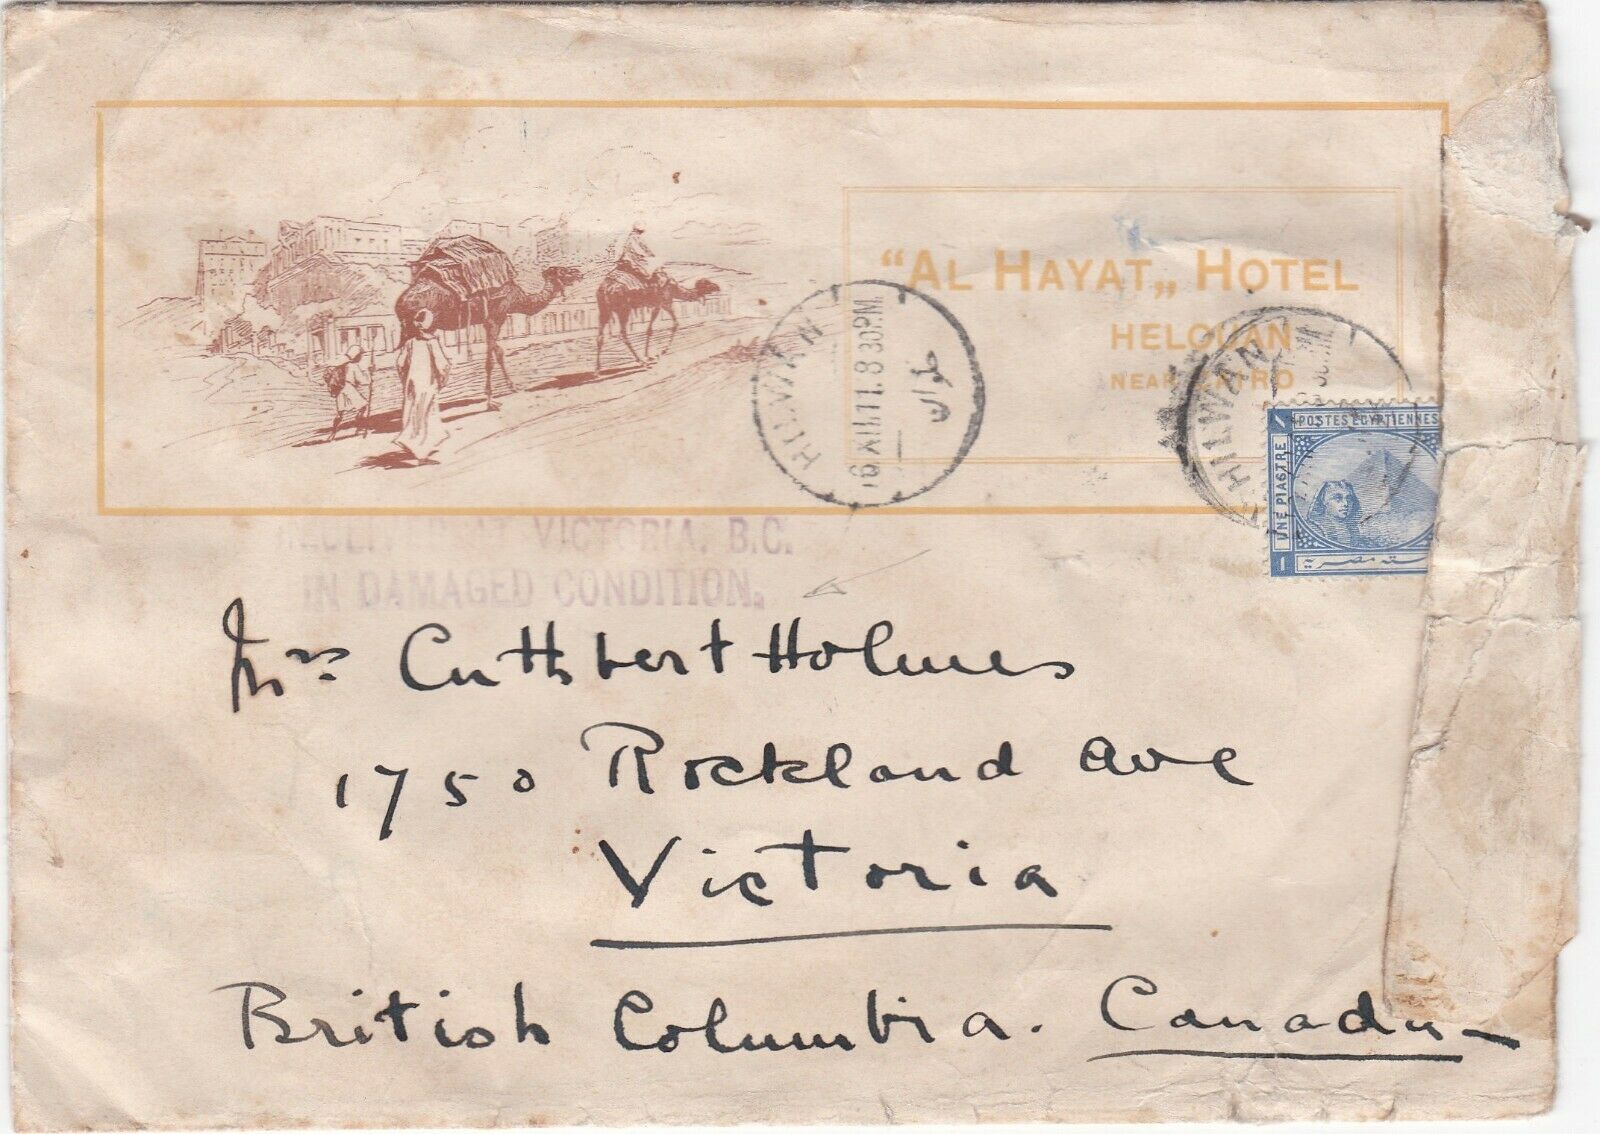 "AL HAYAT,, HOTEL
HELOUAN
NEAR CAIRO
HILWAN
XII.11.8 30PM
حلوان
HILWAN
POSTES EGYPTIENNES
UNE PIASTRE
1
١
RECEIVED AT VICTORIA, B.C.
IN DAMAGED CONDITION.
Mrs Cuthbert Holmes
1750 Rockland Ave
Victoria
British Columbia. Canada